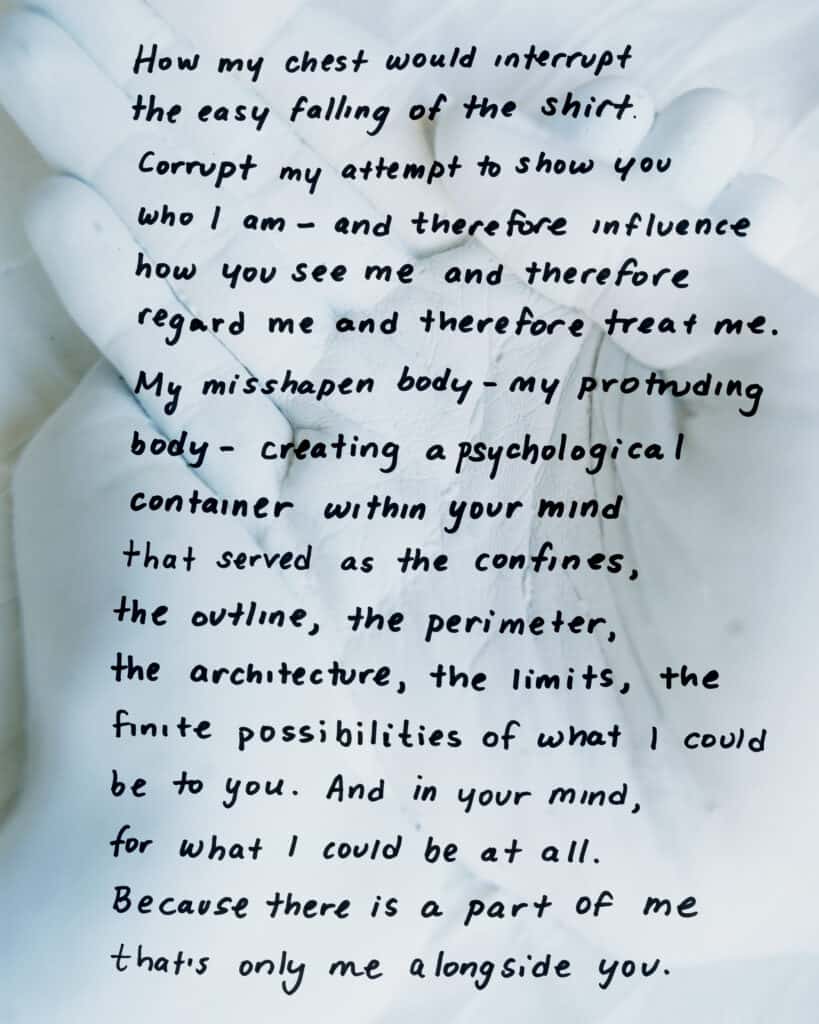 How my chest would interrupt
the easy falling of the shirt.
Corrupt my attempt to show you
who I am – and therefore influence
how you see me and therefore
regard me and therefore treat me.
My misshapen body – my protruding
body – creating a psychological
container within your mind
that served as the confines,
the outline, the perimeter,
the architecture, the limits, the
finite possibilities of what I could
be to you. And in your mind,
for what I could be at all.
Because there is a part of me
that's only me alongside you.